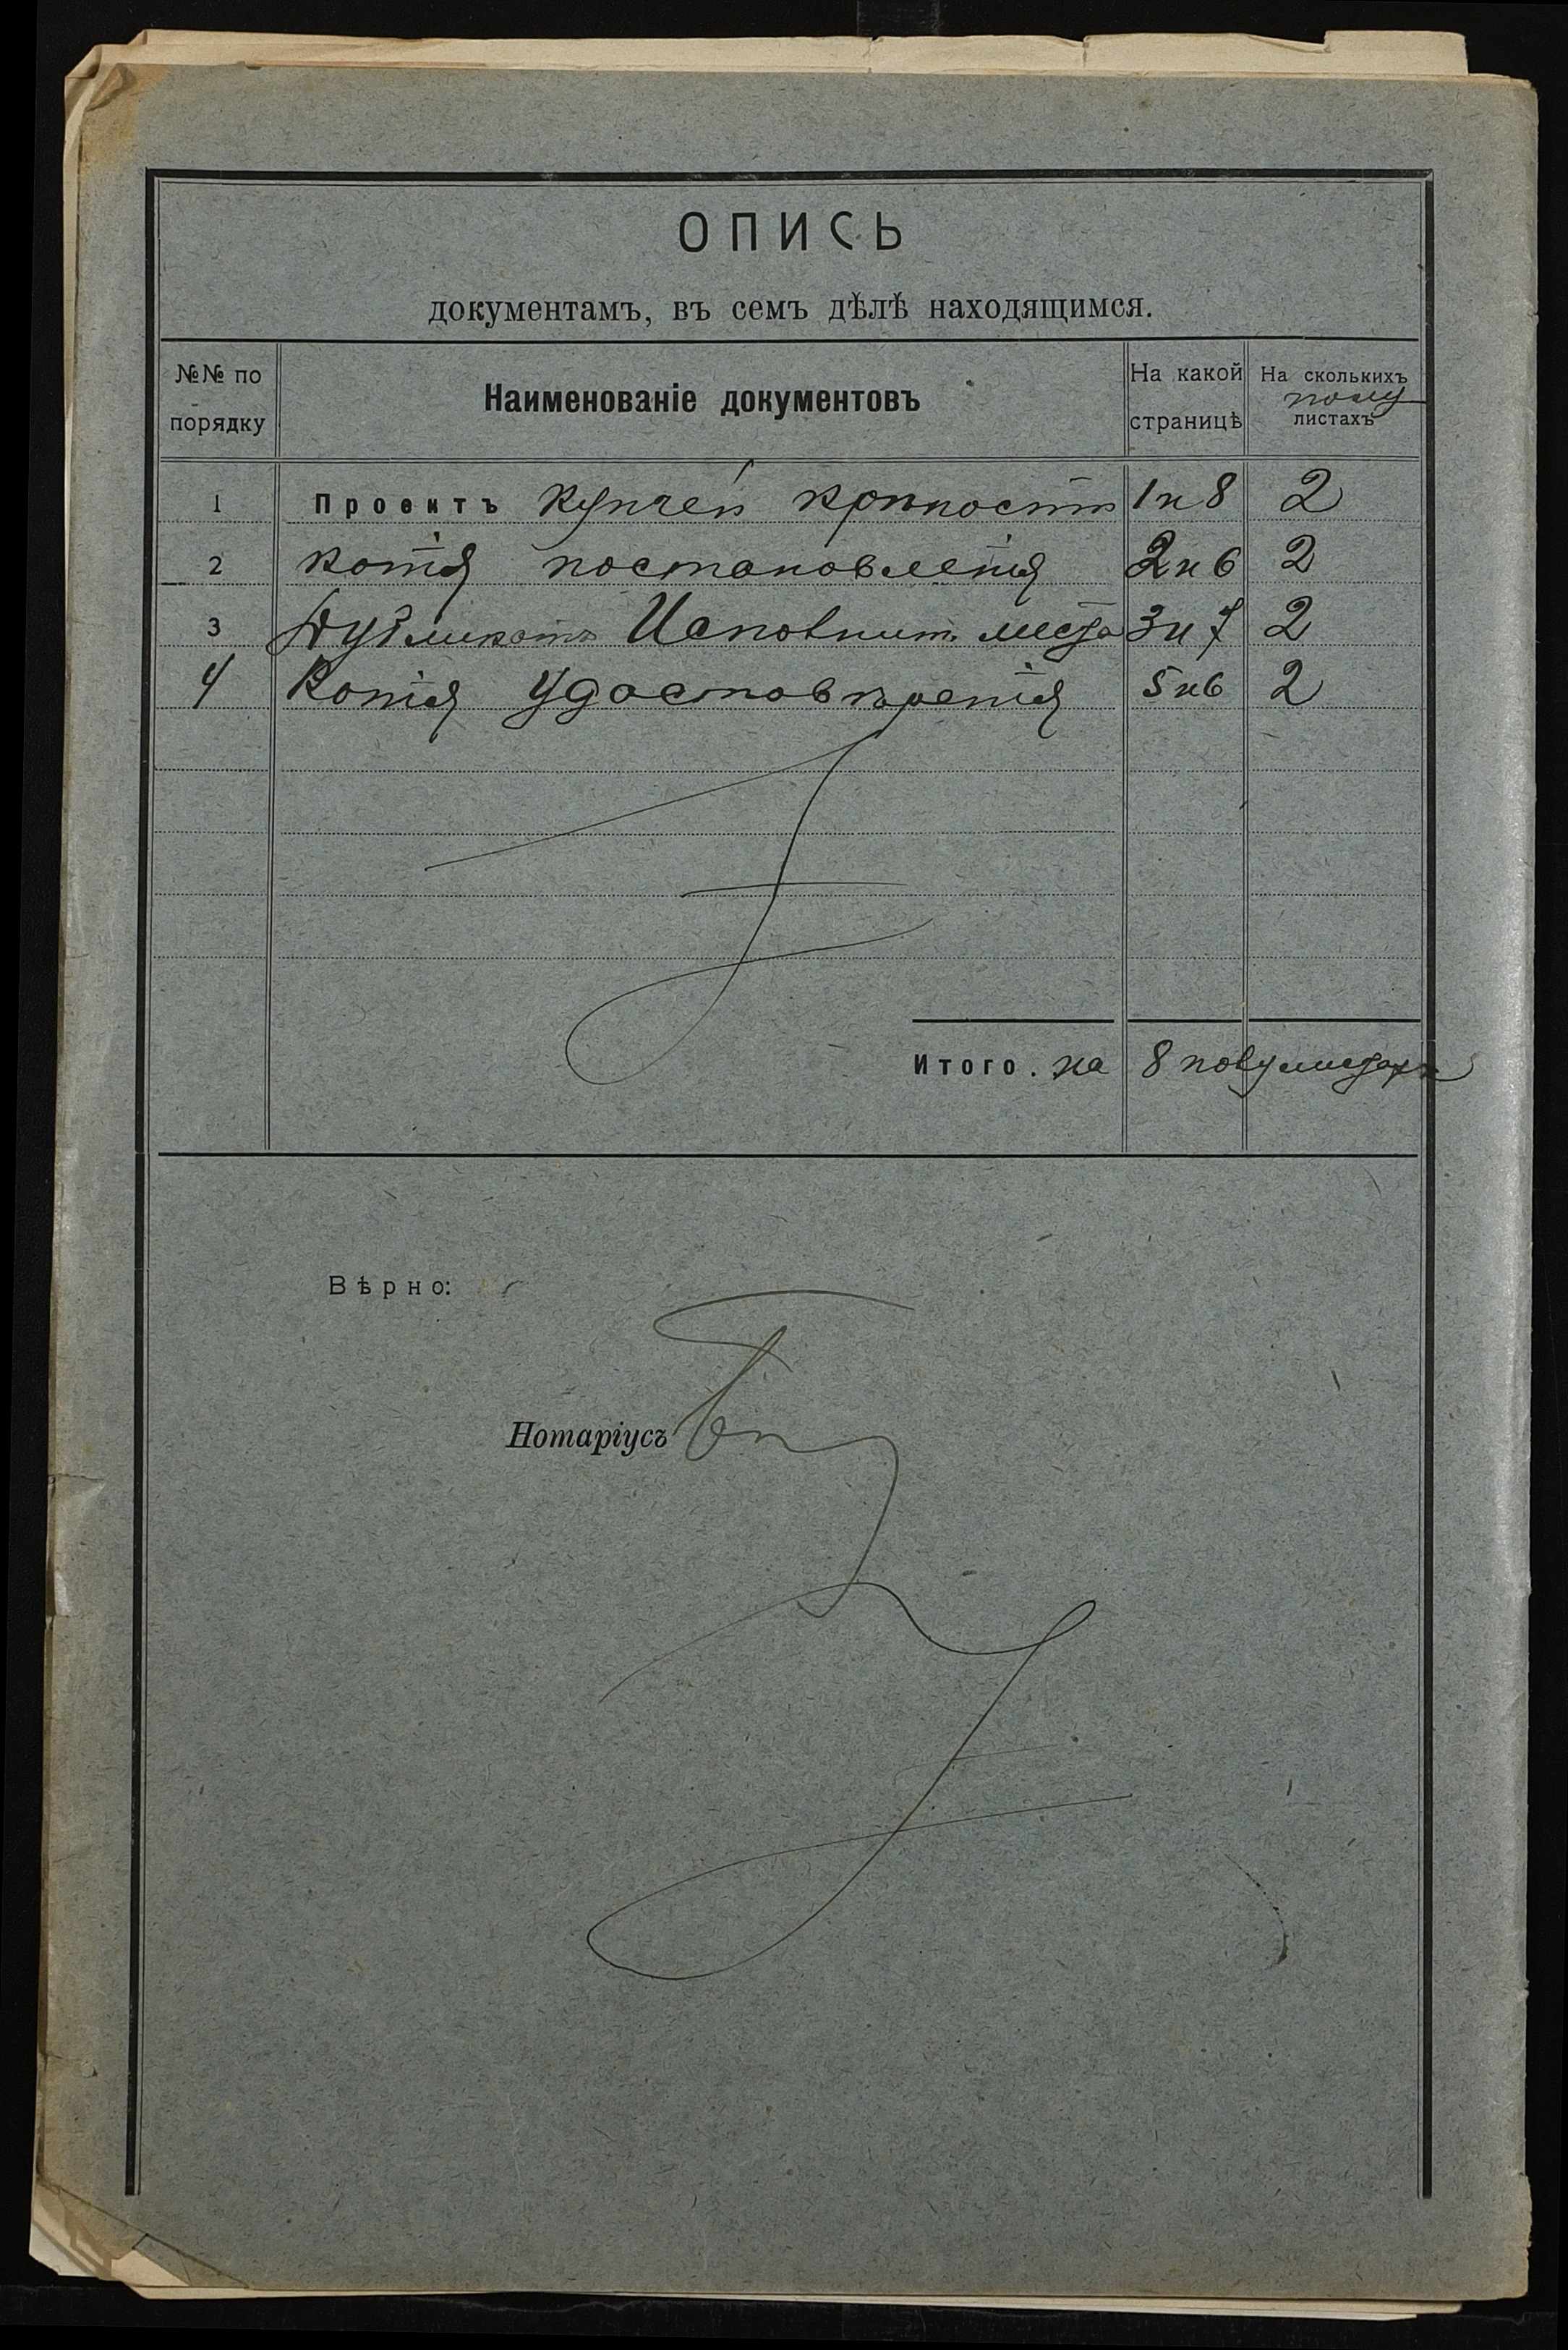 ОПИСЬ
документамъ, въ семъ дѣлѣ находящимся.
№№ по порядку
Наименованіе документовъ
На какой страницѣ
На сколькихъ полу листахъ
1 Проектъ купчей крѣпости 1 и 8 2
2 копія постановленія 2 и 6 2
3 Дубликатъ Исполнит. листа 3 и 7 2
4 Копія удостовѣренія 5 и 6 2
Итого. на 8 полулистахъ
Вѣрно:
Нотаріусъ